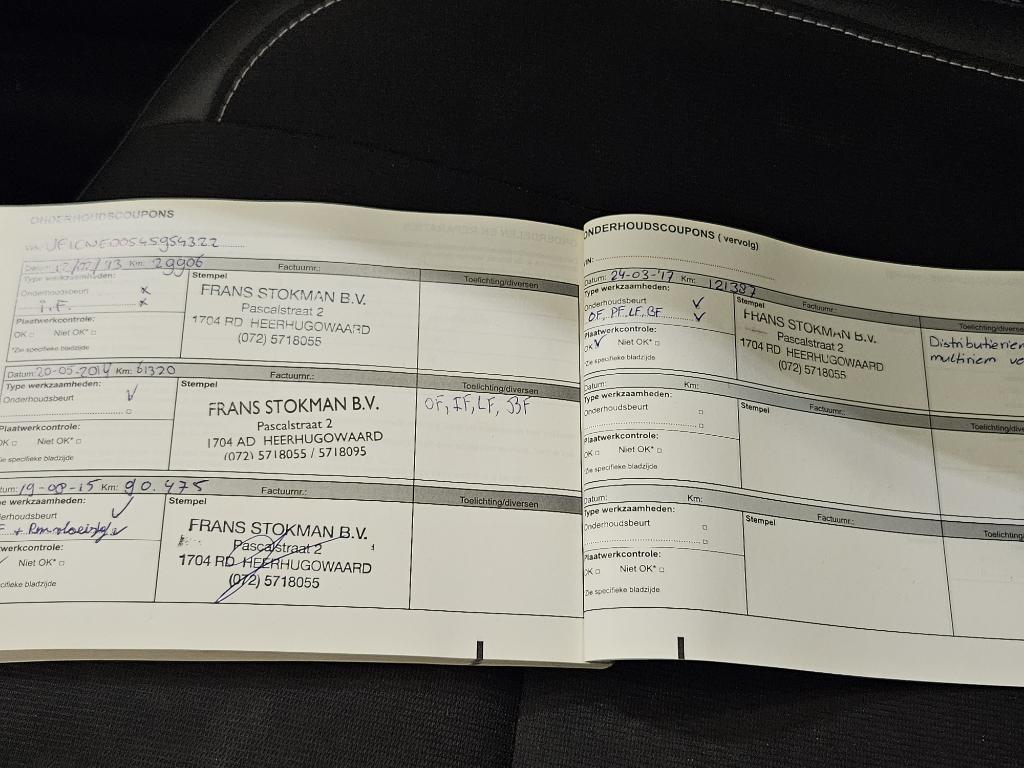 ONDERHOUDSCOUPONS
Datum: Km: 29906 Factuurnr.:
Type werkzaamheden: Stempel Toelichting/diversen
Onderhoudsbeurt x
I.F. x
Plaatwerkcontrole:
OK □ Niet OK* □
*Zie specifieke bladzijde
FRANS STOKMAN B.V.
Pascalstraat 2
1704 RD HEERHUGOWAARD
(072) 5718055
Datum: 20-05-2014 Km: 61320 Factuurnr.:
Type werkzaamheden: Stempel Toelichting/diversen
Onderhoudsbeurt ✓
Plaatwerkcontrole:
OK □ Niet OK* □
Zie specifieke bladzijde
FRANS STOKMAN B.V.
Pascalstraat 2
1704 AD HEERHUGOWAARD
(072) 5718055 / 5718095
OF, IF, LF, BF
tum: 19-08-15 Km: 90.475 Factuurnr.:
e werkzaamheden: Stempel Toelichting/diversen
erhoudsbeurt ✓
werkcontrole:
Niet OK* □
cifieke bladzijde
FRANS STOKMAN B.V.
Pascalstraat 2
1704 RD HEERHUGOWAARD
(072) 5718055
ONDERHOUDSCOUPONS ( vervolg)
VIN:
Datum: 24-03-'17 Km: 121387 Factuurnr.:
Type werkzaamheden: Stempel Toelichting/diversen
Onderhoudsbeurt ✓
OF, PF, LF, BF ✓
Plaatwerkcontrole:
OK ✓ Niet OK* □
*Zie specifieke bladzijde
FRANS STOKMAN B.V.
Pascalstraat 2
1704 RD HEERHUGOWAARD
(072) 5718055
Distributierien
multiriem ve
Datum: Km: Factuurnr.:
Type werkzaamheden: Stempel Toelichting/diversen
Onderhoudsbeurt □
Plaatwerkcontrole:
OK □ Niet OK* □
*Zie specifieke bladzijde
Datum: Km: Factuurnr.:
Type werkzaamheden: Stempel Toelichting
Onderhoudsbeurt □
Plaatwerkcontrole:
OK □ Niet OK* □
*Zie specifieke bladzijde